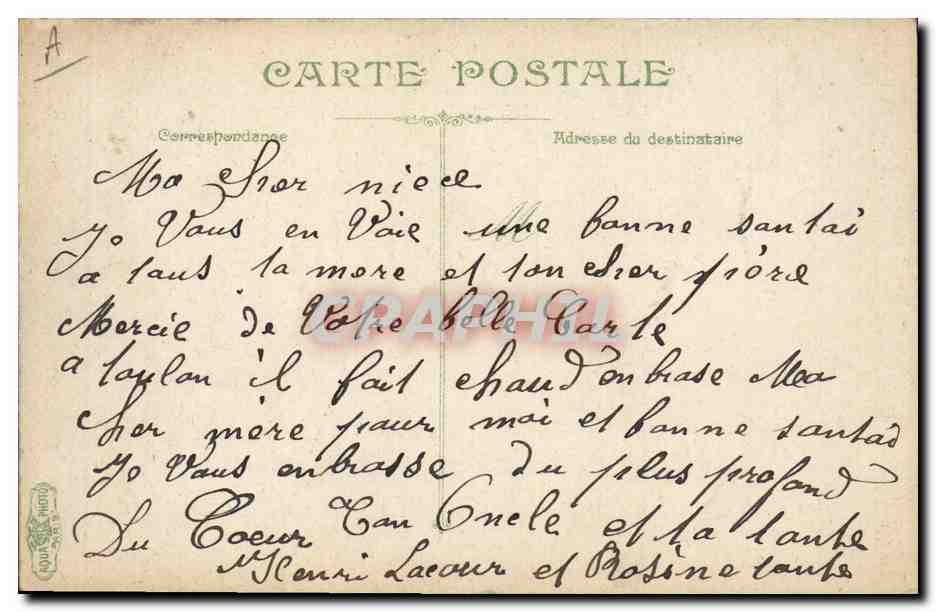 A
CARTE POSTALE
Correspondance
Adresse du destinataire
Ma cher niece
Je Vous en Voie une bonne santai
a tous ta mere et ton cher père
Mercie de Votre belle Carte
a toulon il fait chaud enbrase Ma
cher mère pour moi et bonne santai
Je Vous enbrasse du plus profond
Du Coeur Ton Oncle et ta tante
Henri Lacour et Rosine tante
CPAPHIL
AQUA PHOTO
PARIS